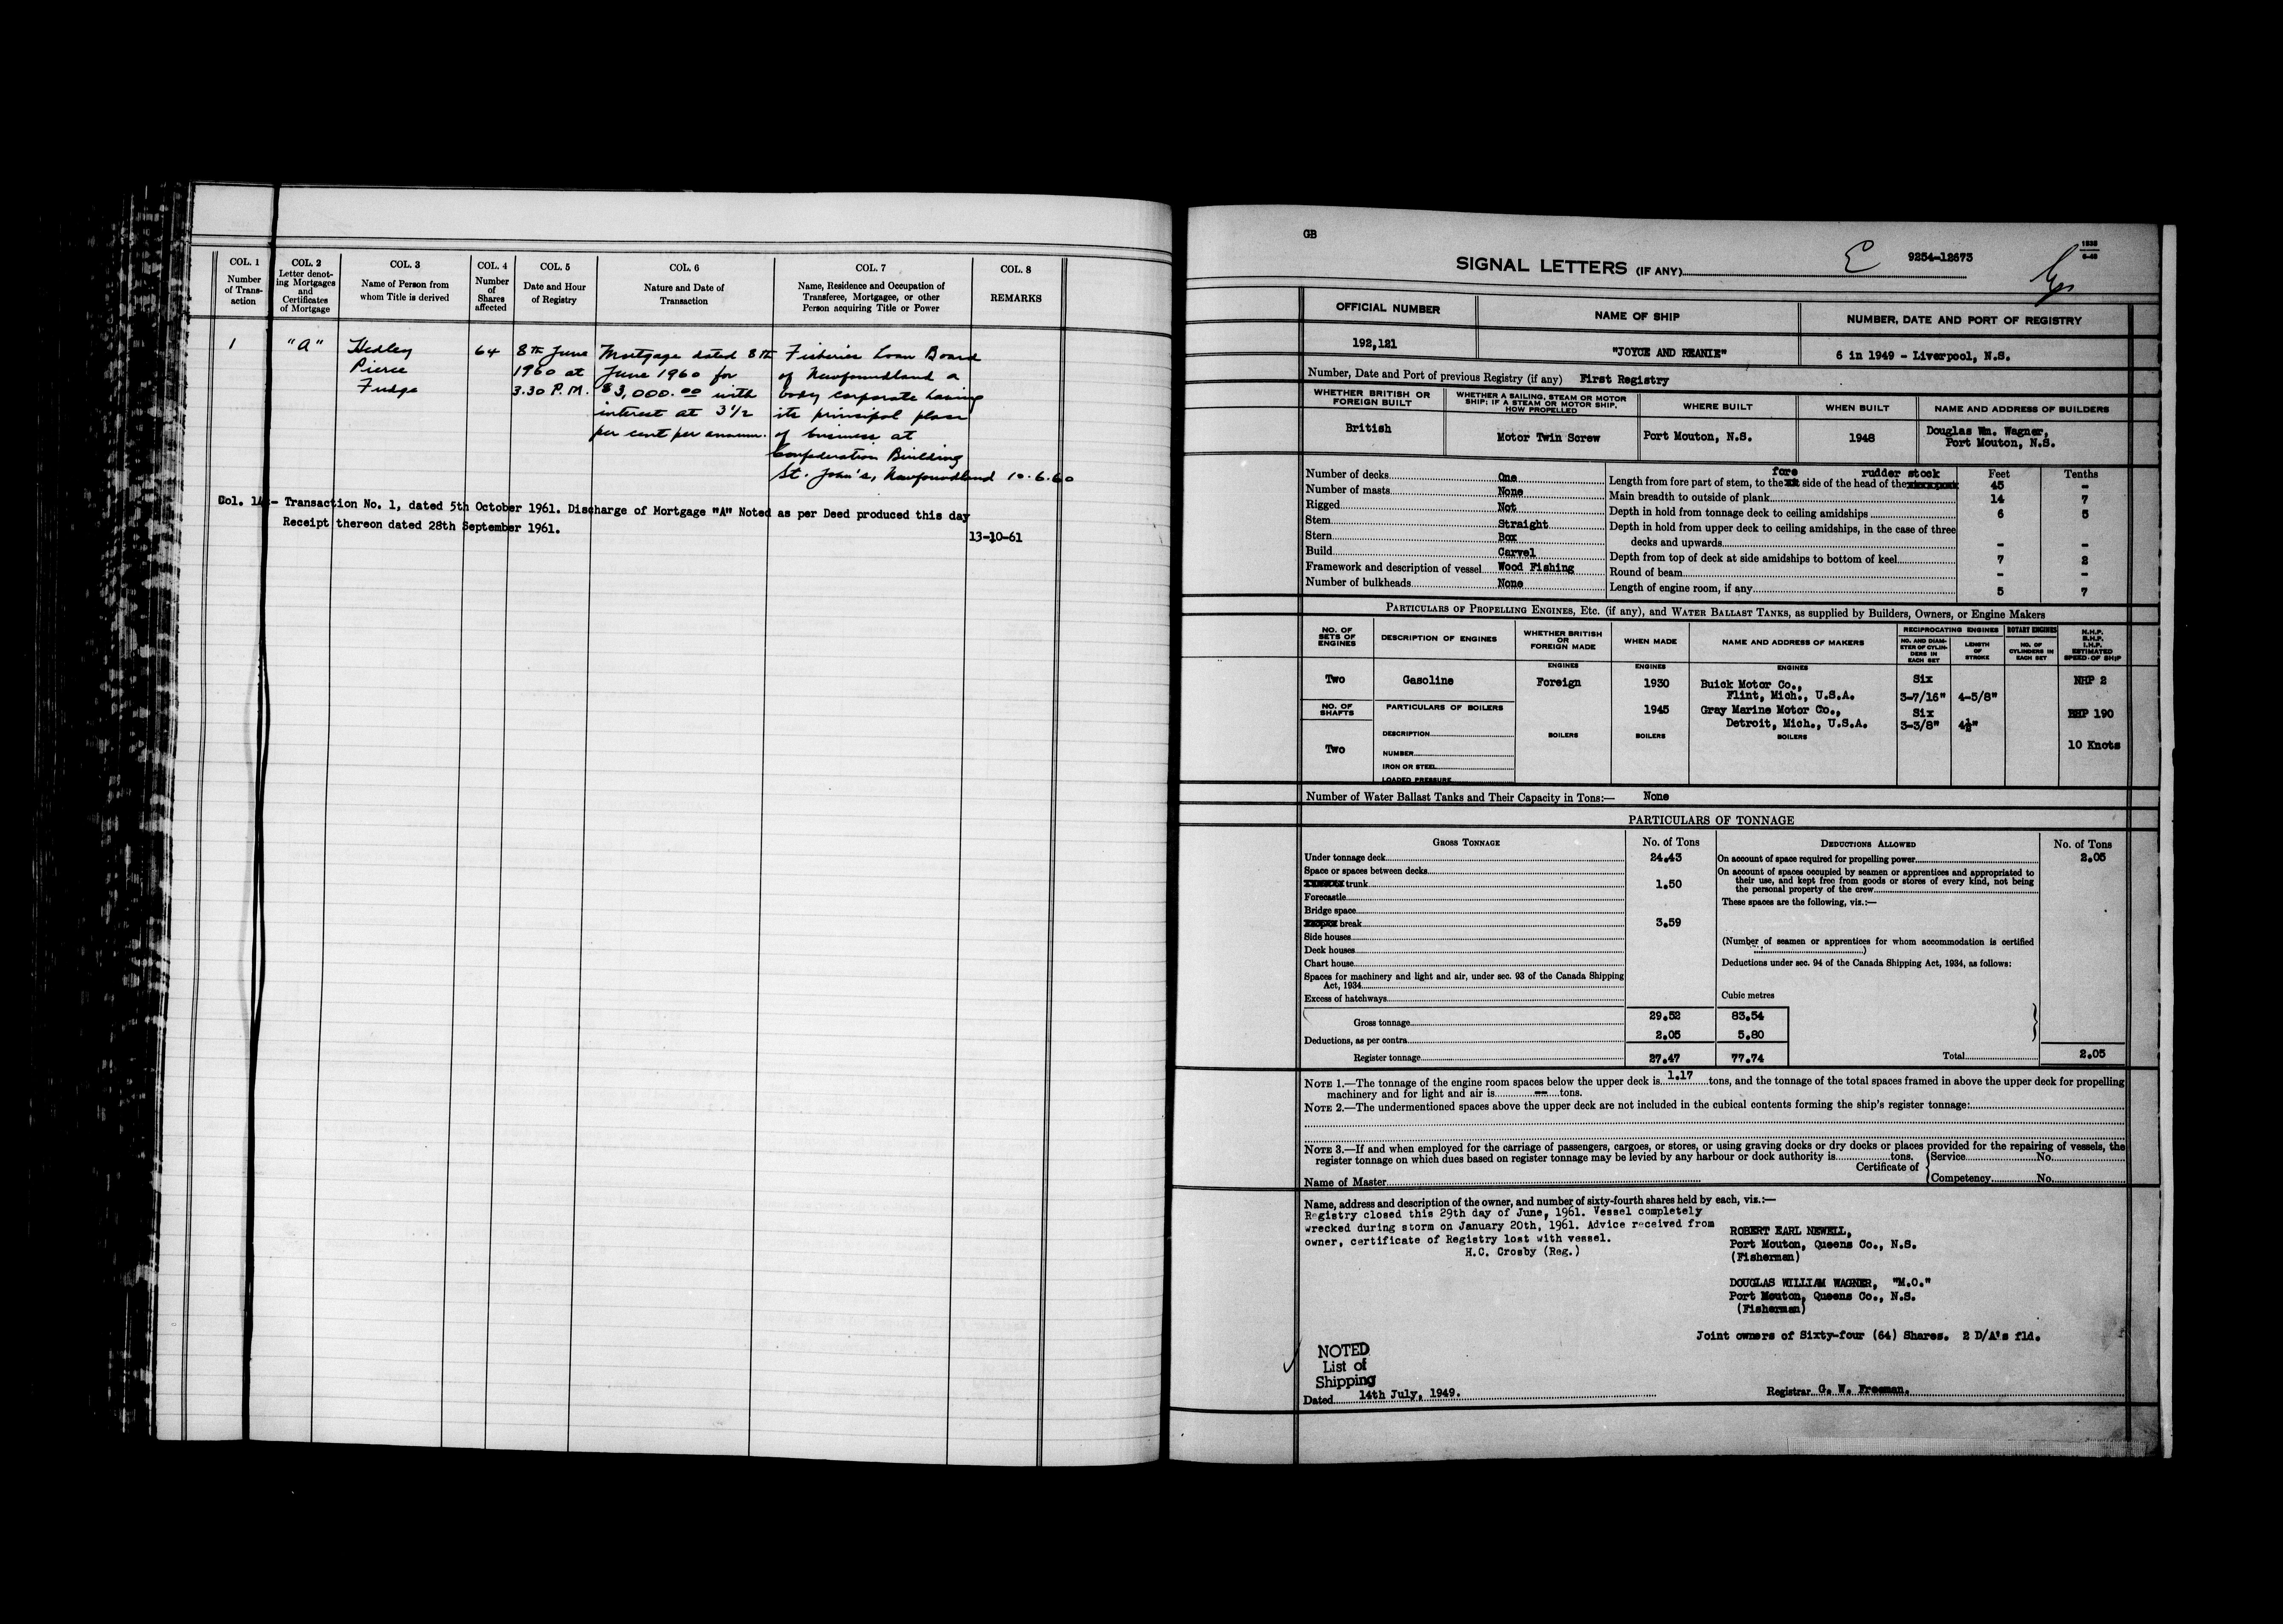 COL. 1
Number
of Trans-
action
COL. 2
Letter denot-
ing Mortgages
and
Certificates
of Mortgage
COL. 3
Name of Person from
whom Title is derived
COL. 4
Number
of
Shares
affected
COL. 5
Date and Hour
of Registry
COL. 6
Nature and Date of
Transaction
COL. 7
Name, Residence and Occupation of
Transferee, Mortgagee, or other
Person acquiring Title or Power
COL. 8
REMARKS
1
"A"
Hedley
Pierce
Fudge
64
8th June
1960 at
3.30 P.M.
Mortgage dated 8th
June 1960 for
$3,000.00 with
interest at 3 1/2
per cent per annum.
Fisheries Loan Board
of Newfoundland a
body corporate having
its principal place
of business at
Confederation Building
St. John's, Newfoundland 10.6.60
Col. 1A - Transaction No. 1, dated 5th October 1961. Discharge of Mortgage "A" Noted as per Deed produced this day
Receipt thereon dated 28th September 1961.
13-10-61
GB
SIGNAL LETTERS (IF ANY)
E
9254-12673
OFFICIAL NUMBER
NAME OF SHIP
NUMBER, DATE AND PORT OF REGISTRY
192,121
"JOYCE AND REANIE"
6 in 1949 - Liverpool, N.S.
Number, Date and Port of previous Registry (if any) First Registry
WHETHER BRITISH OR
FOREIGN BUILT
WHETHER A SAILING, STEAM OR MOTOR
SHIP; IF A STEAM OR MOTOR SHIP,
HOW PROPELLED
WHERE BUILT
WHEN BUILT
NAME AND ADDRESS OF BUILDERS
British
Motor Twin Screw
Port Mouton, N.S.
1948
Douglas Wm. Wagner,
Port Mouton, N.S.
Number of decks One
Number of masts None
Rigged Not
Stem Straight
Stern Box
Build Carvel
Framework and description of vessel Wood Fishing
Number of bulkheads None
Feet
Tenths
fore rudder stock
Length from fore part of stem, to the side of the head of the 45 -
Main breadth to outside of plank 14 7
Depth in hold from tonnage deck to ceiling amidships 6 5
Depth in hold from upper deck to ceiling amidships, in the case of three
decks and upwards - -
Depth from top of deck at side amidships to bottom of keel 7 2
Round of beam - -
Length of engine room, if any 5 7
PARTICULARS OF PROPELLING ENGINES, ETC. (if any), and WATER BALLAST TANKS, as supplied by Builders, Owners, or Engine Makers
NO. OF
SETS OF
ENGINES
DESCRIPTION OF ENGINES
WHETHER BRITISH
OR
FOREIGN MADE
WHEN MADE
NAME AND ADDRESS OF MAKERS
RECIPROCATING ENGINES
ROTARY ENGINES
NO. AND DIAM-
ETER OF CYLIN-
DERS IN
EACH SET
LENGTH
OF
STROKE
NO. OF
CYLINDERS IN
EACH SET
N.H.P.
B.H.P.
I.H.P.
ESTIMATED
SPEED OF SHIP
ENGINES
ENGINES
ENGINES
Two
Gasoline
Foreign
1930
Buick Motor Co.,
Flint, Mich., U.S.A.
Six
3-7/16" 4-5/8"
NHP 2
NO. OF
SHAFTS
PARTICULARS OF BOILERS
1945
Gray Marine Motor Co.,
Detroit, Mich., U.S.A.
Six
3-3/8" 4½"
BHP 190
Two
DESCRIPTION
NUMBER
IRON OR STEEL
LOADED PRESSURE
BOILERS
BOILERS
BOILERS
10 Knots
Number of Water Ballast Tanks and Their Capacity in Tons:— None
PARTICULARS OF TONNAGE
GROSS TONNAGE
No. of Tons
Under tonnage deck 24.43
Space or spaces between decks
trunk 1.50
Forecastle
Bridge space
break 3.59
Side houses
Deck houses
Chart house
Spaces for machinery and light and air, under sec. 93 of the Canada Shipping
Act, 1934
Excess of hatchways
Gross tonnage 29.52 83.54
Deductions, as per contra 2.05 5.80
Register tonnage 27.47 77.74
DEDUCTIONS ALLOWED
No. of Tons
On account of space required for propelling power 2.05
On account of spaces occupied by seamen or apprentices and appropriated to
their use, and kept free from goods or stores of every kind, not being
the personal property of the crew
These spaces are the following, viz.:—
(Number of seamen or apprentices for whom accommodation is certified
)
Deductions under sec. 94 of the Canada Shipping Act, 1934, as follows:
Cubic metres
Total 2.05
NOTE 1.—The tonnage of the engine room spaces below the upper deck is 1.17 tons, and the tonnage of the total spaces framed in above the upper deck for propelling
machinery and for light and air is — tons.
NOTE 2.—The undermentioned spaces above the upper deck are not included in the cubical contents forming the ship's register tonnage:
NOTE 3.—If and when employed for the carriage of passengers, cargoes, or stores, or using graving docks or dry docks or places provided for the repairing of vessels, the
register tonnage on which dues based on register tonnage may be levied by any harbour or dock authority is tons.
Certificate of
Service No.
Competency No.
Name of Master
Name, address and description of the owner, and number of sixty-fourth shares held by each, viz.:—
Registry closed this 29th day of June, 1961. Vessel completely
wrecked during storm on January 20th, 1961. Advice received from
owner, certificate of Registry lost with vessel.
H.C. Crosby (Reg.)
ROBERT EARL NEWELL,
Port Mouton, Queens Co., N.S.
(Fisherman)
DOUGLAS WILLIAM WAGNER, "M.O."
Port Mouton, Queens Co., N.S.
(Fisherman)
Joint owners of Sixty-four (64) Shares. 2 D/A's fld.
NOTED
List of
Shipping
Dated 14th July, 1949.
Registrar G. W. Freeman.